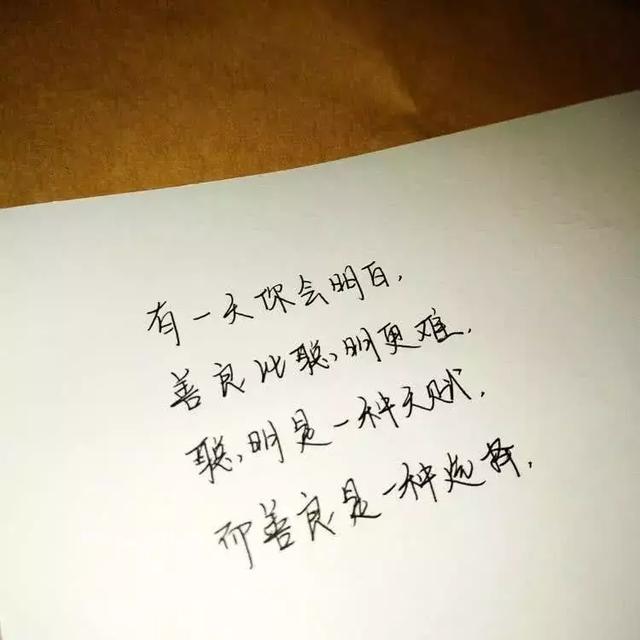 有一天你会明白，
善良比聪明更难．
聪明是一种天赋，
而善良是一种选择．